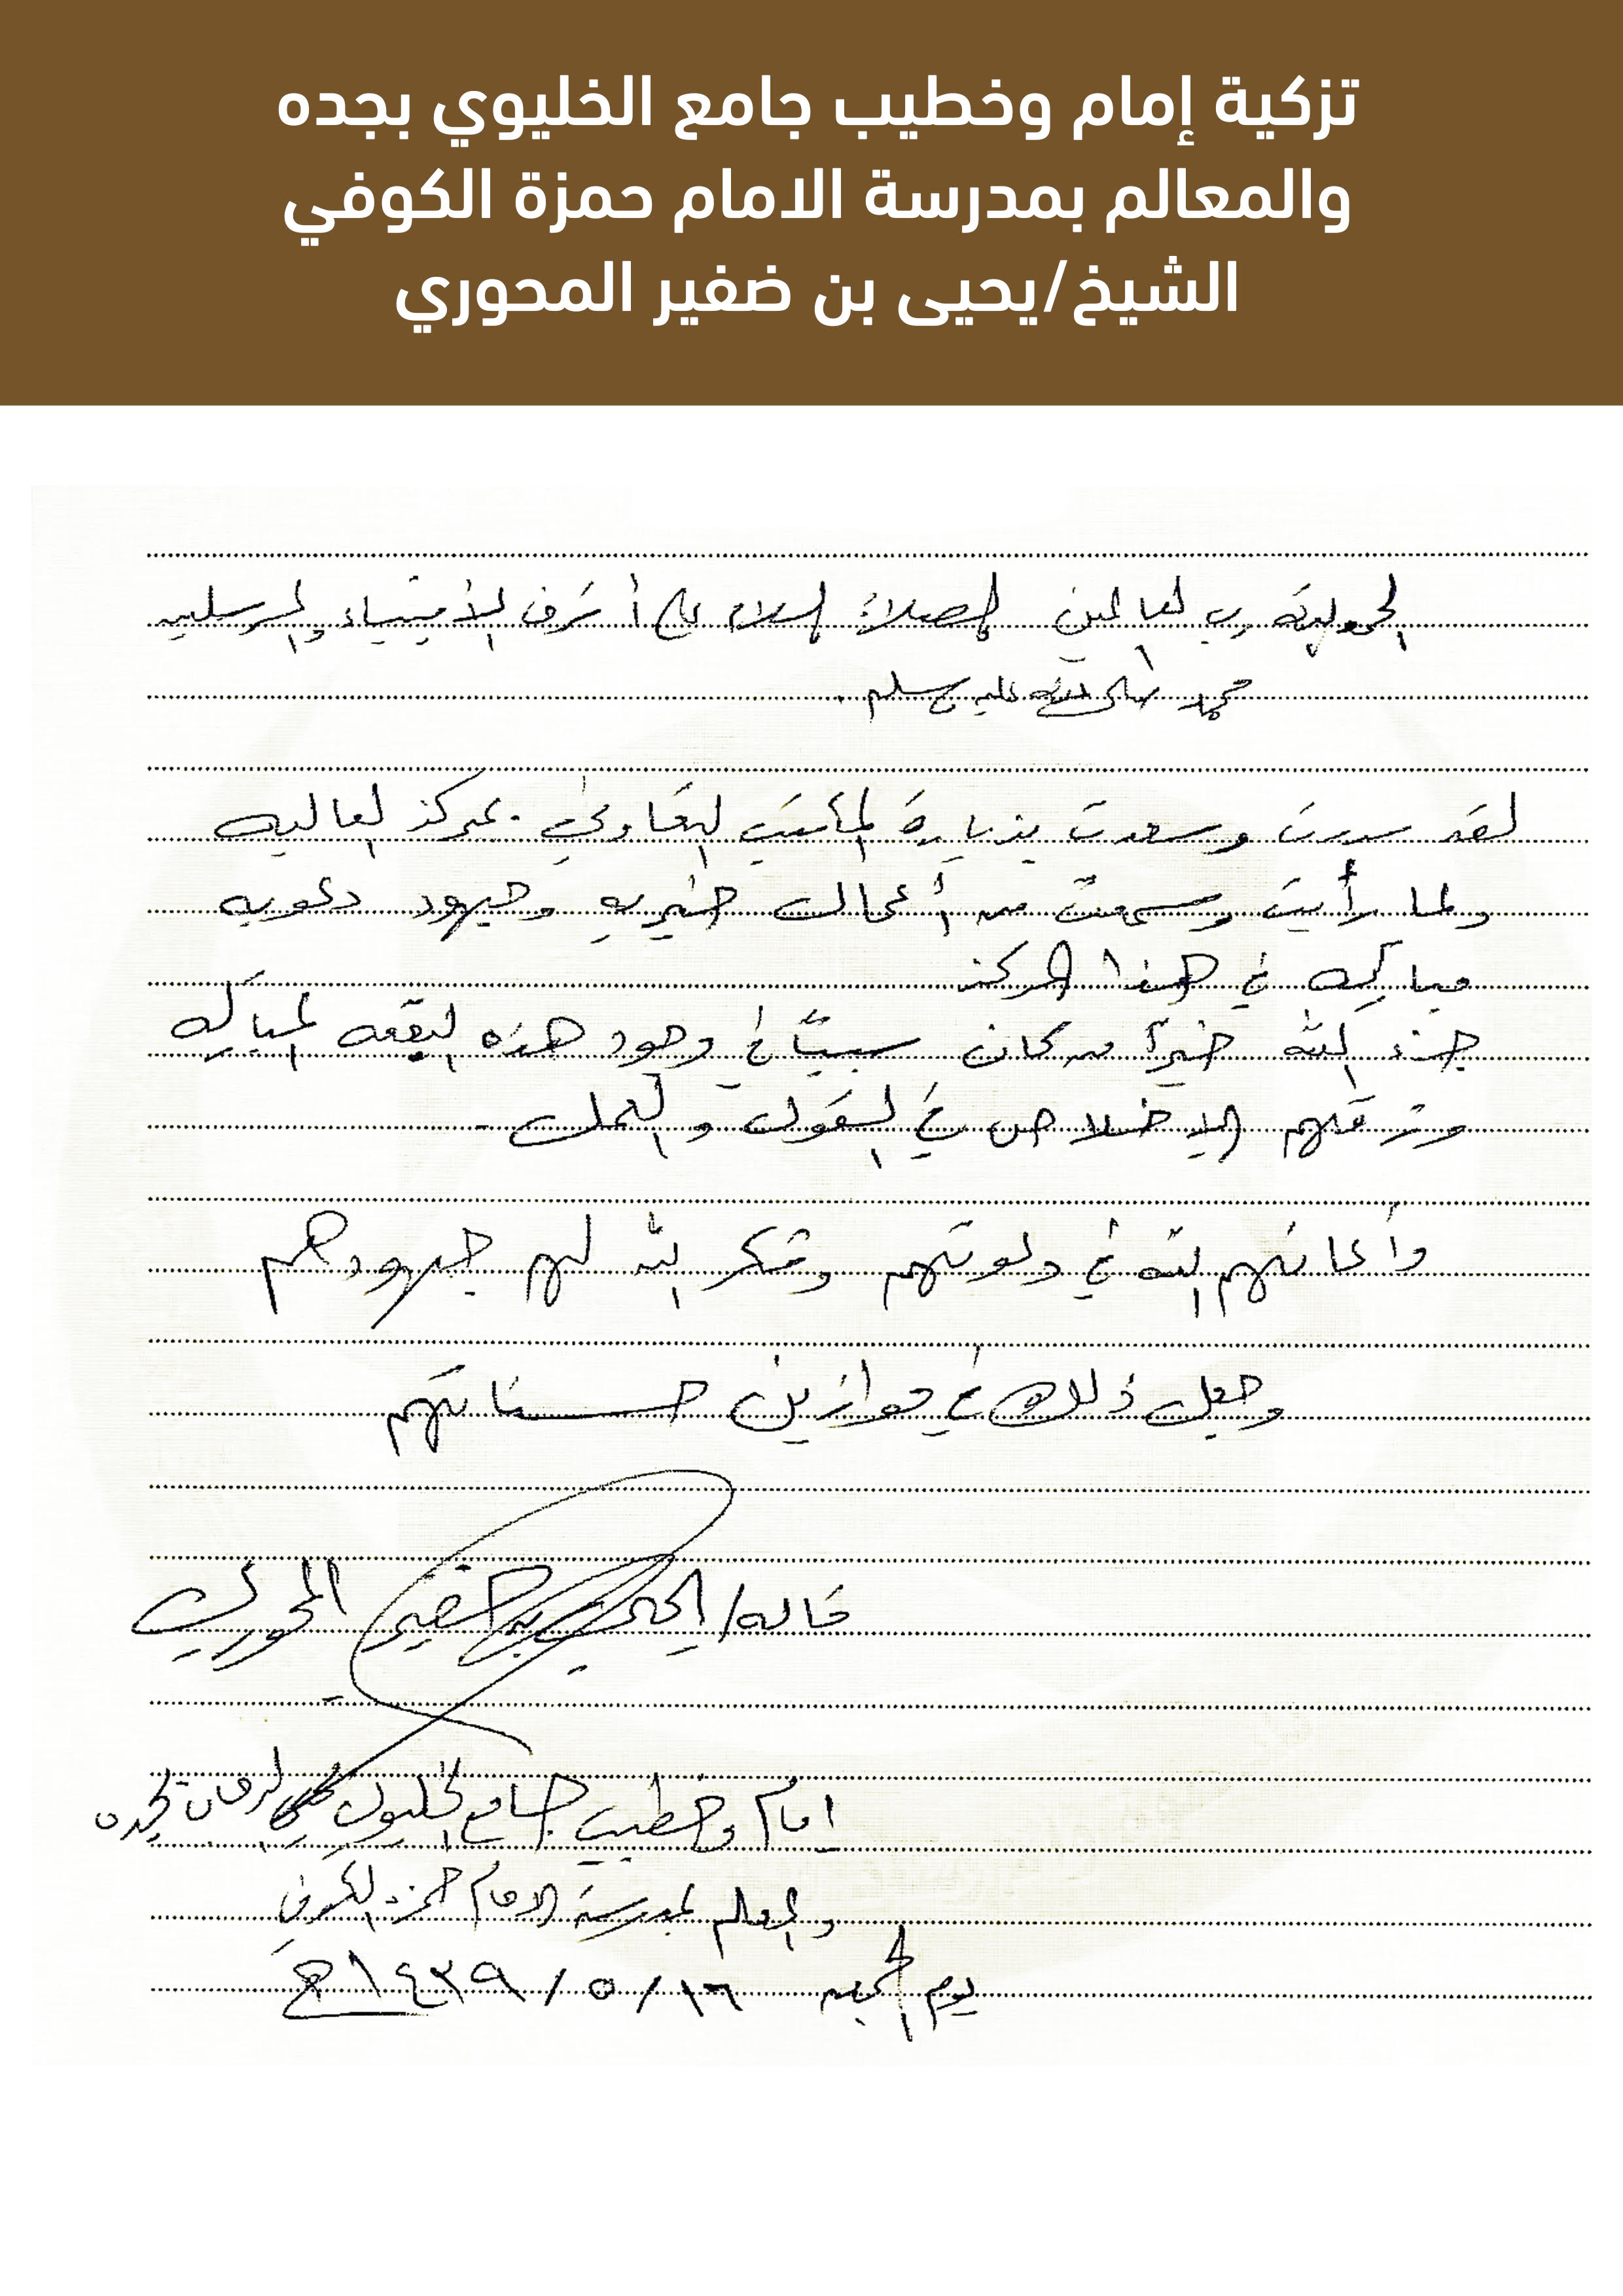 تزكية إمام وخطيب جامع الخليوي بجده
والمعالم بمدرسة الامام حمزة الكوفي
الشيخ/يحيى بن ضفير المحوري
الحمد لله رب العالمين الصلاة السلام على أشرف الأنبياء والمرسلين
محمد صلى الله عليه وسلم .
لقد سررت وسعدت بزيارة المكتب التعاوني بمركز العاليه
ولما رأيت وسمعت من أعمال خيريه وجهود دعويه
مباركه في هذا المركز
جزء الله خيرآ من كان سببآ في وجود هذه البقعه المباركه
ورزقهم الاخلاص في القول والعمل .
وأعانهم الله في دعوتهم وشكر الله لهم جهودهم
وجعل ذلك في موازين حسناتهم
قاله/ يحيى بن ضفير المحوري
امام وخطيب جامع الخليوي بجده
والمعلم بمدرسة الامام حمزه الكوفي
يوم الجمعه ١٦ / ٥ / ١٤٣٩ هـ